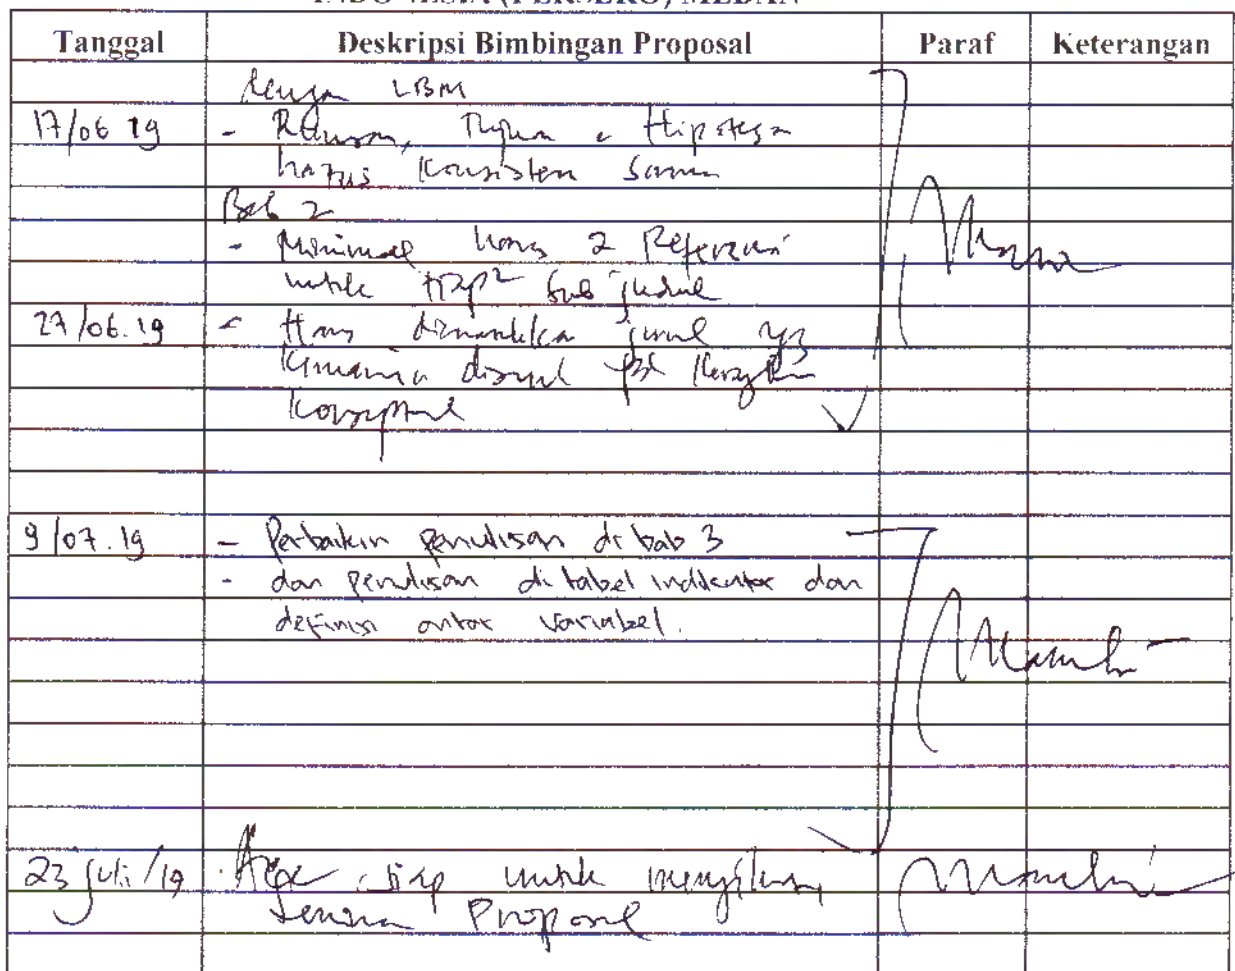 INDONESIA (PERSERO) MEDAN
Tanggal Deskripsi Bimbingan Proposal Paraf Keterangan
dengan LBM
17/06 19 - Rumusan, Tujuan & Hipotesa
harus Konsisten Sama
Bab 2
- Minimal harus 2 Referensi
untuk tiap² Sub judul
27/06.19 - Harus dimasukkan jurnal yg
disusul
Konseptual
9/07.19 - Perbaikin penulisan di bab 3
- dan penulisan di tabel indikator dan
definisi antar variabel.
23 juli/19 . Acc siap untuk mengikuti
Seminar Proposal